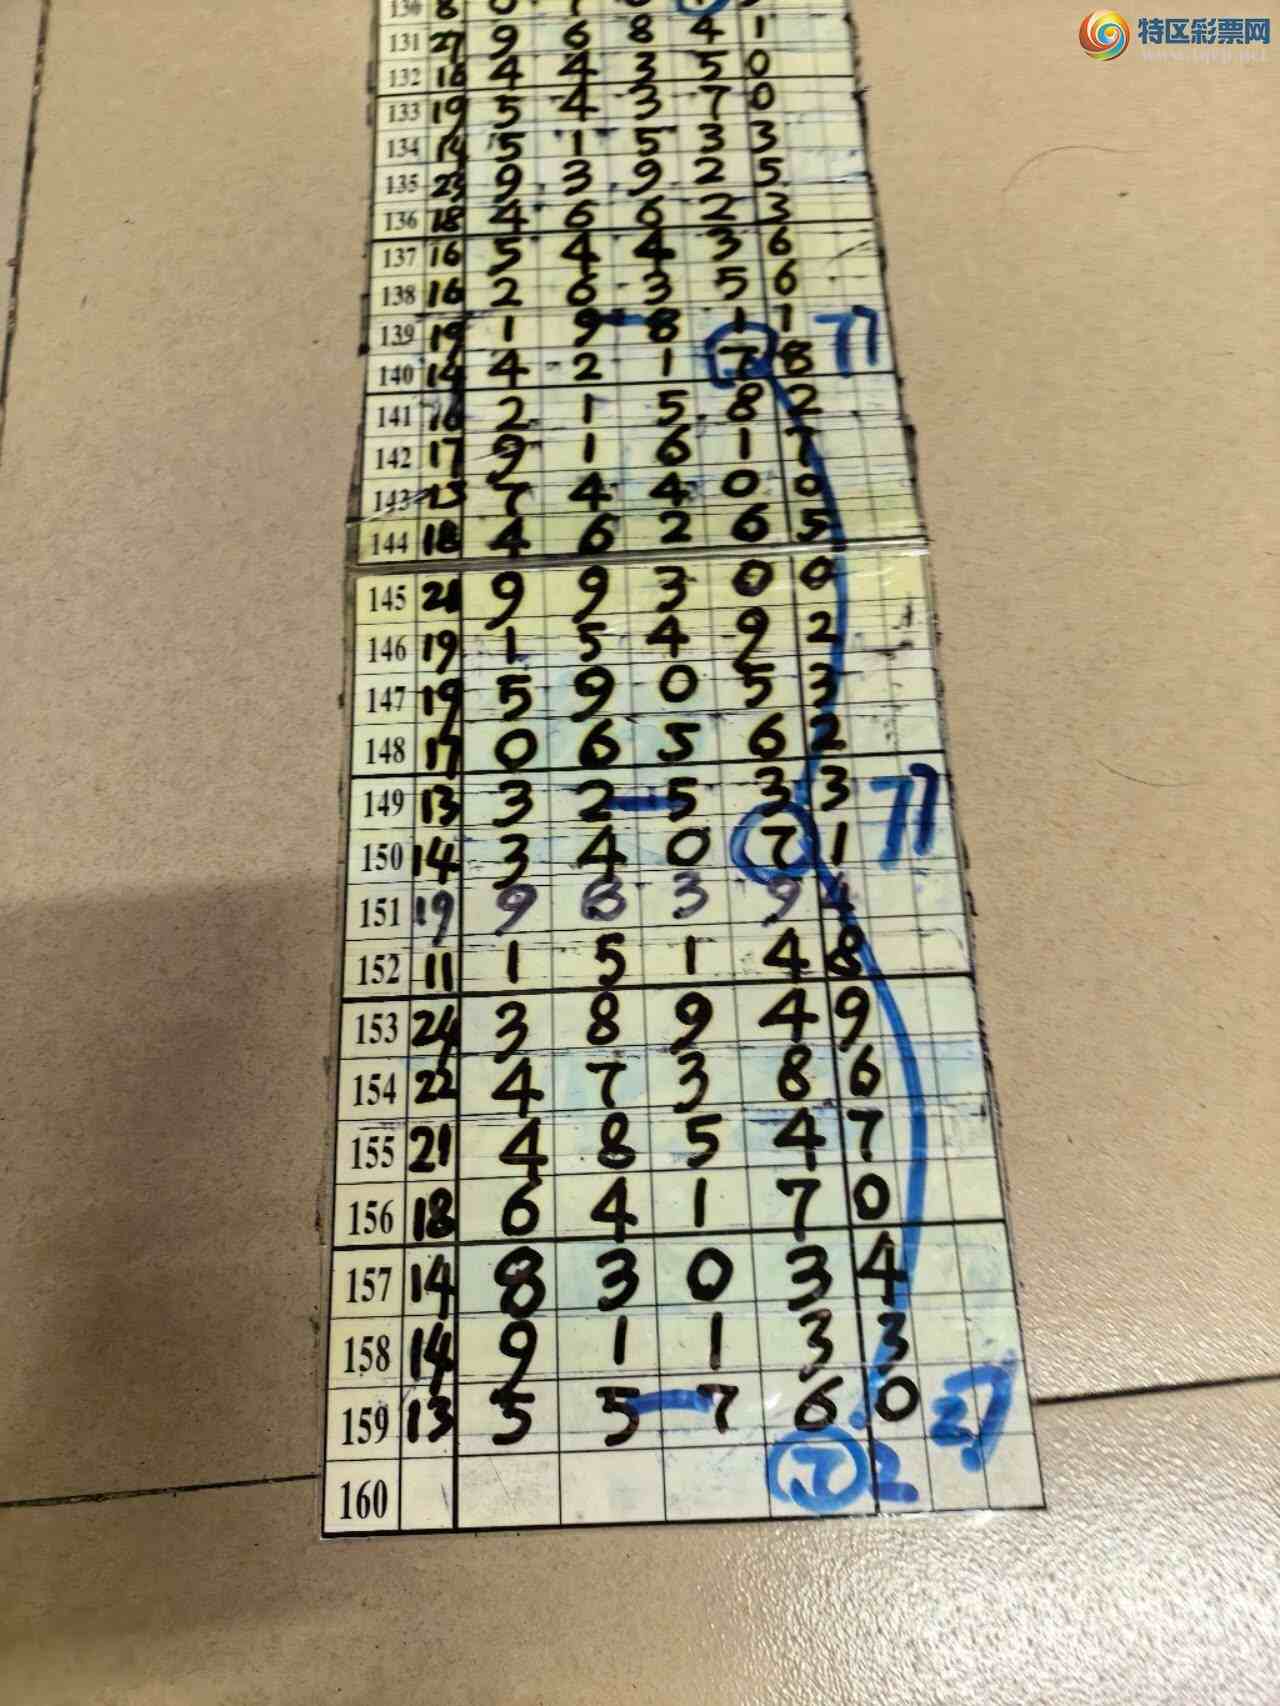 特区彩票网
130 8 0
131 27 9 6 8 4 1
132 16 4 4 3 5 0
133 19 5 4 3 7 0
134 14 5 1 5 3 3
135 23 9 3 9 2 5
136 18 4 6 6 2 3
137 16 5 4 4 3 6
138 16 2 6 3 5 6
139 19 1 9 8 1 7 77
140 14 4 2 1 7 8
141 16 2 1 5 8 2
142 17 9 1 6 1 7
143 15 7 4 4 0 0
144 18 4 6 2 6 5
145 21 9 9 3 0 0
146 19 1 5 4 9 2
147 19 5 9 0 5 3
148 17 0 6 5 6 2
149 13 3 2 5 3 3 77
150 14 3 4 0 7 1
151 19 9 3 9 4
152 11 1 5 1 4 8
153 24 3 8 9 4 9
154 22 4 7 3 8 6
155 21 4 8 5 4 7
156 18 6 4 1 7 0
157 14 8 3 0 3 4
158 14 9 1 1 3 3
159 13 5 5 7 6 0 27
160 7 2